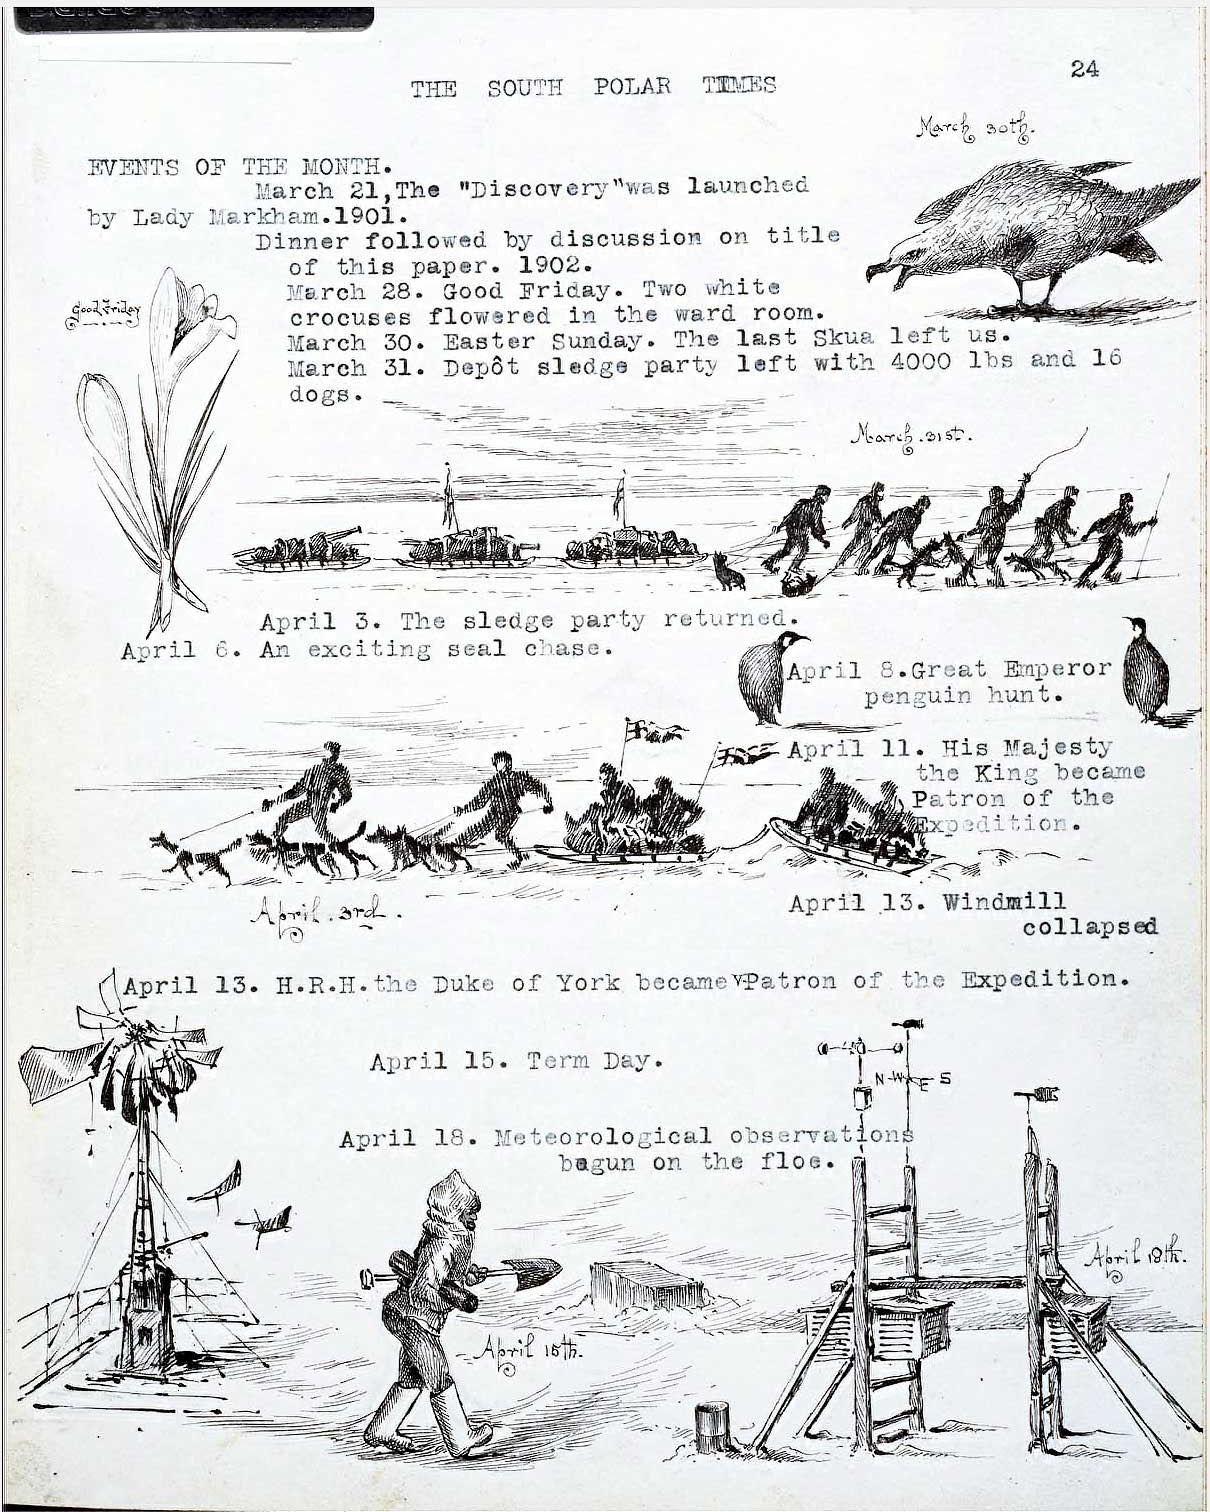 24
THE SOUTH POLAR TIMES
March 30th.
EVENTS OF THE MONTH.
March 21,The "Discovery"was launched
by Lady Markham.1901.
Dinner followed by discussion on title
of this paper. 1902.
March 28. Good Friday. Two white
crocuses flowered in the ward room.
March 30. Easter Sunday. The last Skua left us.
March 31. Depôt sledge party left with 4000 lbs and 16
dogs.
Good Friday
March 31st.
April 3. The sledge party returned.
April 6. An exciting seal chase.
April 8.Great Emperor
penguin hunt.
April 11. His Majesty
the King became
Patron of the
Expedition.
April 3rd.
April 13. Windmill
collapsed
April 13. H.R.H.the Duke of York became V-Patron of the Expedition.
April 15. Term Day.
N W E S
April 18. Meteorological observations
begun on the floe.
April 18th.
April 15th.